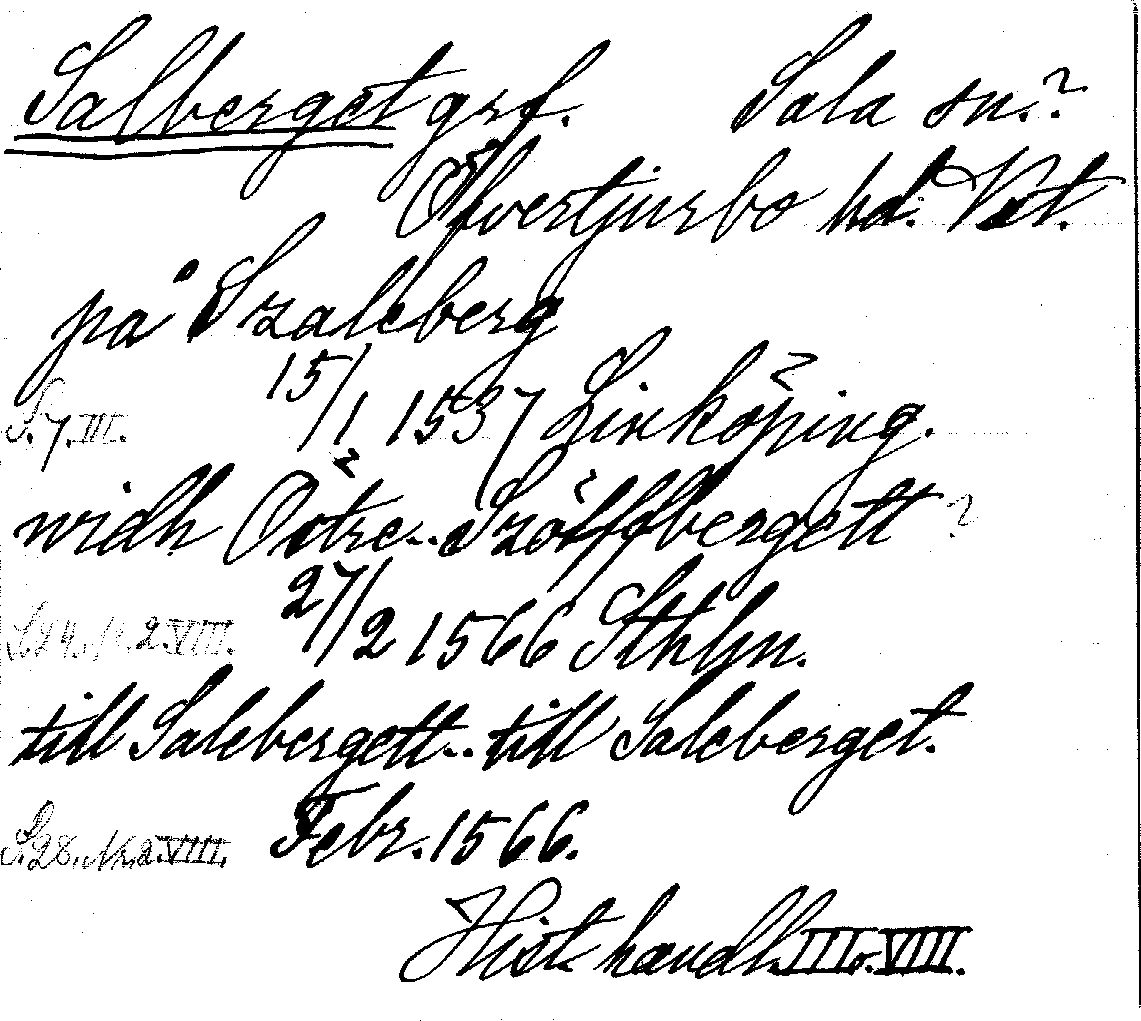 Salberget grf. Sala sn.?
Öfvertjurbo hd. Vst.
på Szaleberg
S. 7. III. 15/1 1537 Linköping.
widh Östre.. Szölffbergett ?
S. 24. Nr. 2. VIII. 27/2 1566 Sthlm.
till Salebergett.. till Saleberget.
S. 28. Nr. 2. VIII. Febr. 1566.
Hist. handl. III o. VIII.